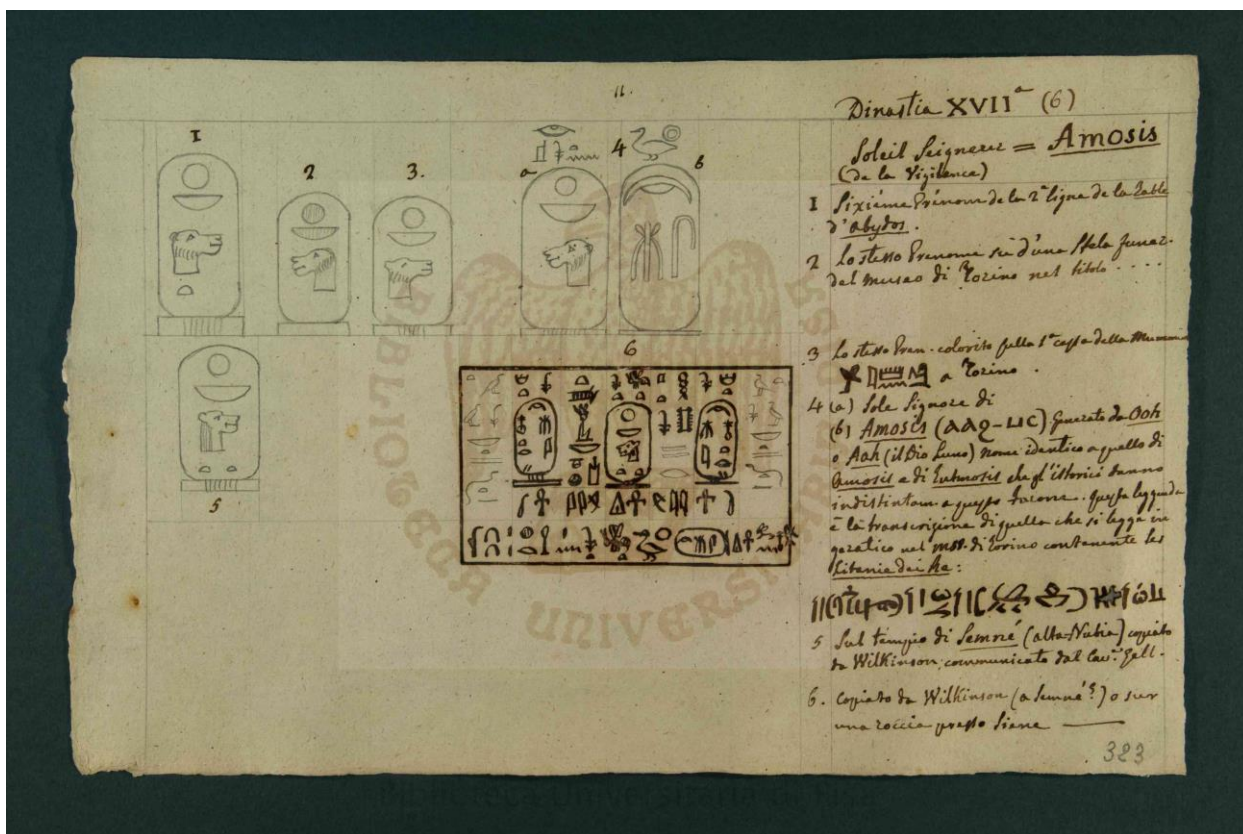 11.
Dinastia XVIIª (6)
Soleil Seigneur = Amosis
(de la Vigilance)
1 Sixiéme Prénom de la 2ª ligne de la Table
d'Abydos.
2 Lo stesso Prenome su d'una Stela funer.
del museo di Torino nel titolo . . . .
3 Lo stesso Pren. colorito sulla 1ª cassa della Mummia
a Torino.
4 (a) Sole Signore di
(b) Amosis generato da Ooh
o Aah (il Dio Luno) nome identico a quello di
Amosis e di Tutmosis che gl'istorici danno
indistintam. a questo Faraone. questa leggenda
è la trascrizione di quella che si legge in
geratico nel mss. di Torino contenente le
Litanie dei Re:
5 Sul tempio di Semné (alta Nubia) copiato
da Wilkinson; communicato dal Cav. Gell.
6. copiato da Wilkinson (a Semné?) o sur
una roccia presso Siene
383
1
2
3.
a
4
6
6
5
BIBLIOTECA UNIVERSITARIA
Biblioteca Universitaria di Pisa